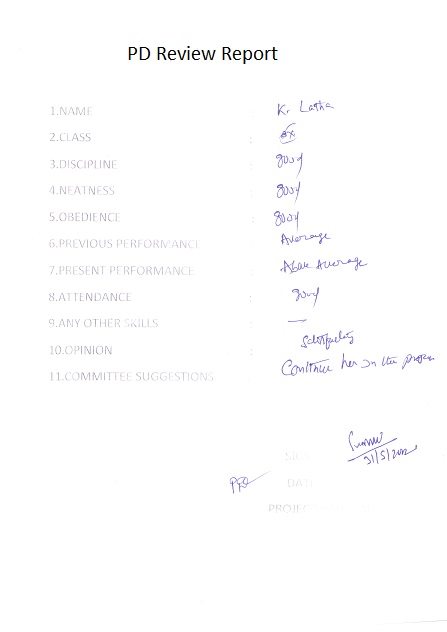 PD Review Report
1.NAME : K. Latha
2.CLASS :
3.DISCIPLINE : good
4.NEATNESS : good
5.OBEDIENCE : good
6.PREVIOUS PERFORMANCE : Average
7.PRESENT PERFORMANCE : Above Average
8.ATTENDANCE : good
9.ANY OTHER SKILLS : —
10.OPINION : Satisfactory
11.COMMITTEE SUGGESTIONS : Continue her in the program
31/5/2012
DATE